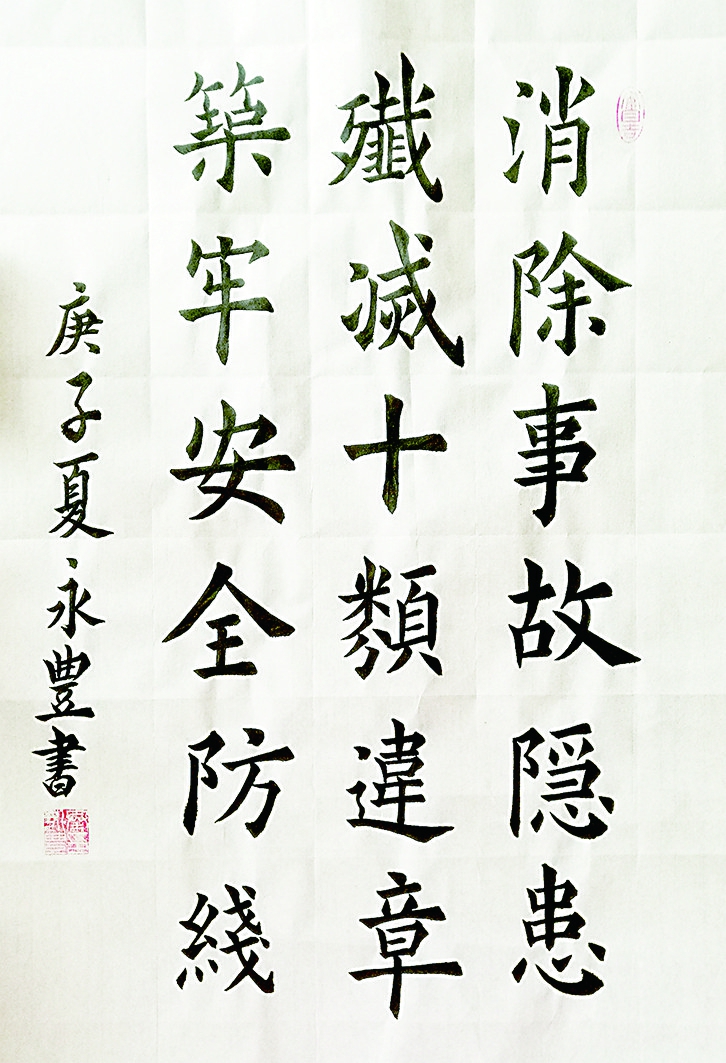 消除事故隐患
殲滅十類違章
築牢安全防綫
庚子夏永豐書